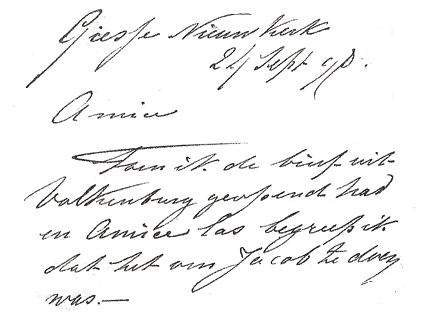 Giesse Nieuw Kerk
24 Sept 90.
Amice
Toen ik de brief uit
Valkenburg geopend had
en Amice las begreep ik
dat het om Jacob te doen
was.—